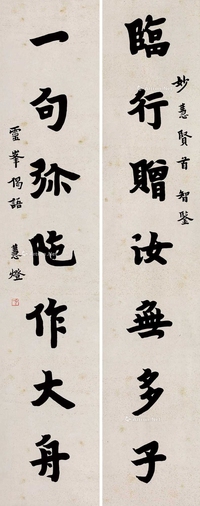 妙慧賢首 智鑒
臨行贈汝無多子
一句弥陀作大舟
靈峯偈語 慧燈